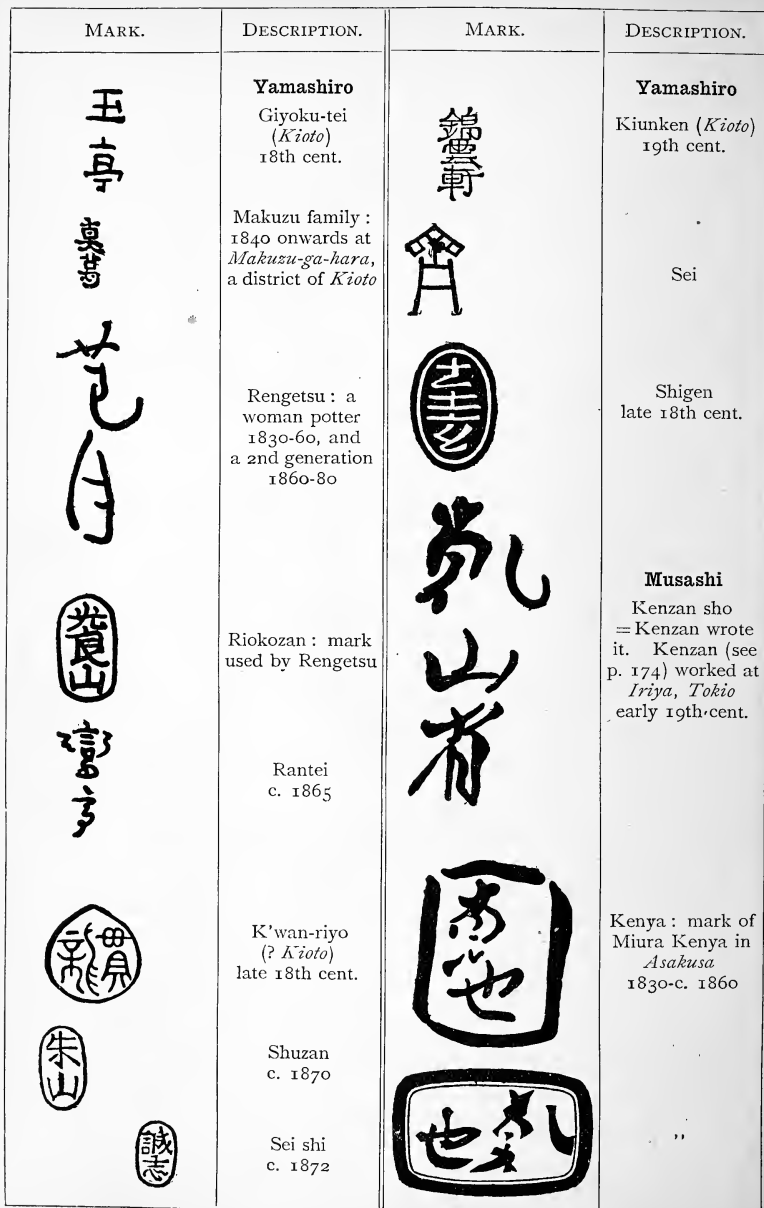 MARK.
DESCRIPTION.
玉
亭
Yamashiro
Giyoku-tei
(Kioto)
18th cent.
真葛
Makuzu family :
1840 onwards at
Makuzu-ga-hara,
a district of Kioto
Rengetsu : a
woman potter
1830-60, and
a 2nd generation
1860-80
月
Riokozan : mark
used by Rengetsu
山
Rantei
c. 1865
亭
K'wan-riyo
(? Kioto)
late 18th cent.
貫
龍
Shuzan
c. 1870
朱
山
Sei shi
c. 1872
誠
志
MARK.
DESCRIPTION.
錦
雲
軒
Yamashiro
Kiunken (Kioto)
19th cent.
Sei
Shigen
late 18th cent.
乾
山
Musashi
Kenzan sho
= Kenzan wrote
it. Kenzan (see
p. 174) worked at
Iriya, Tokio
early 19th cent.
也
Kenya : mark of
Miura Kenya in
Asakusa
1830-c. 1860
乾
也
"